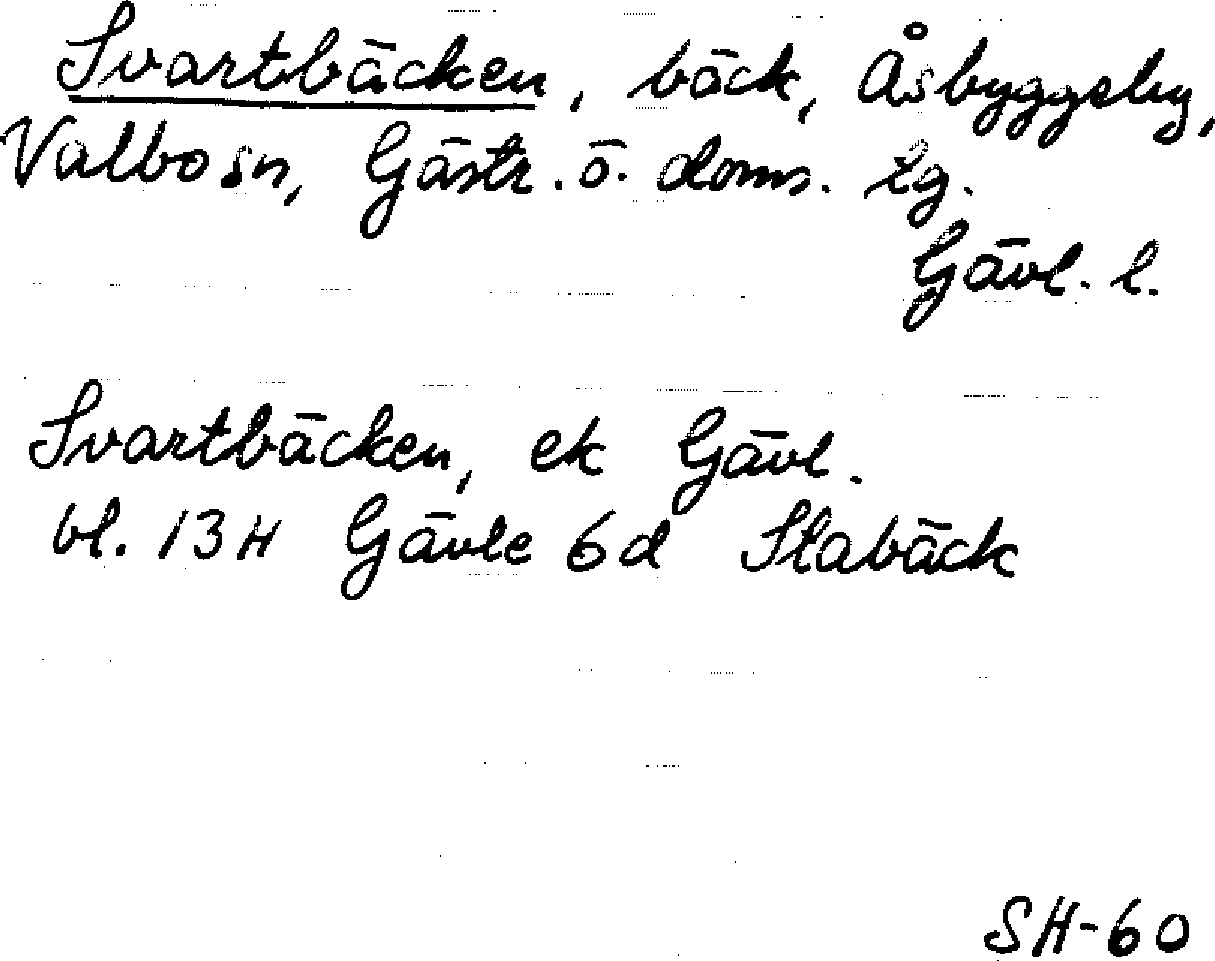 Svartbäcken, bäck, Åsbyggeby,
Valbo sn, Gästr. ö. doms. tg.
Gävl. l.
Svartbäcken, ek Gävl.
bl. 13H Gävle 6d Stabäck
SH-60